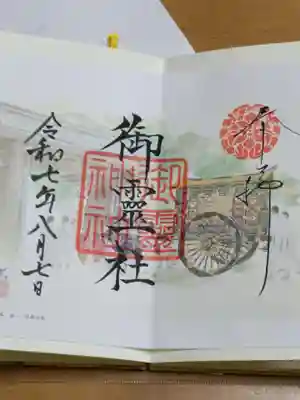 奉拝
御靈社
御靈神社
令和七年八月七日